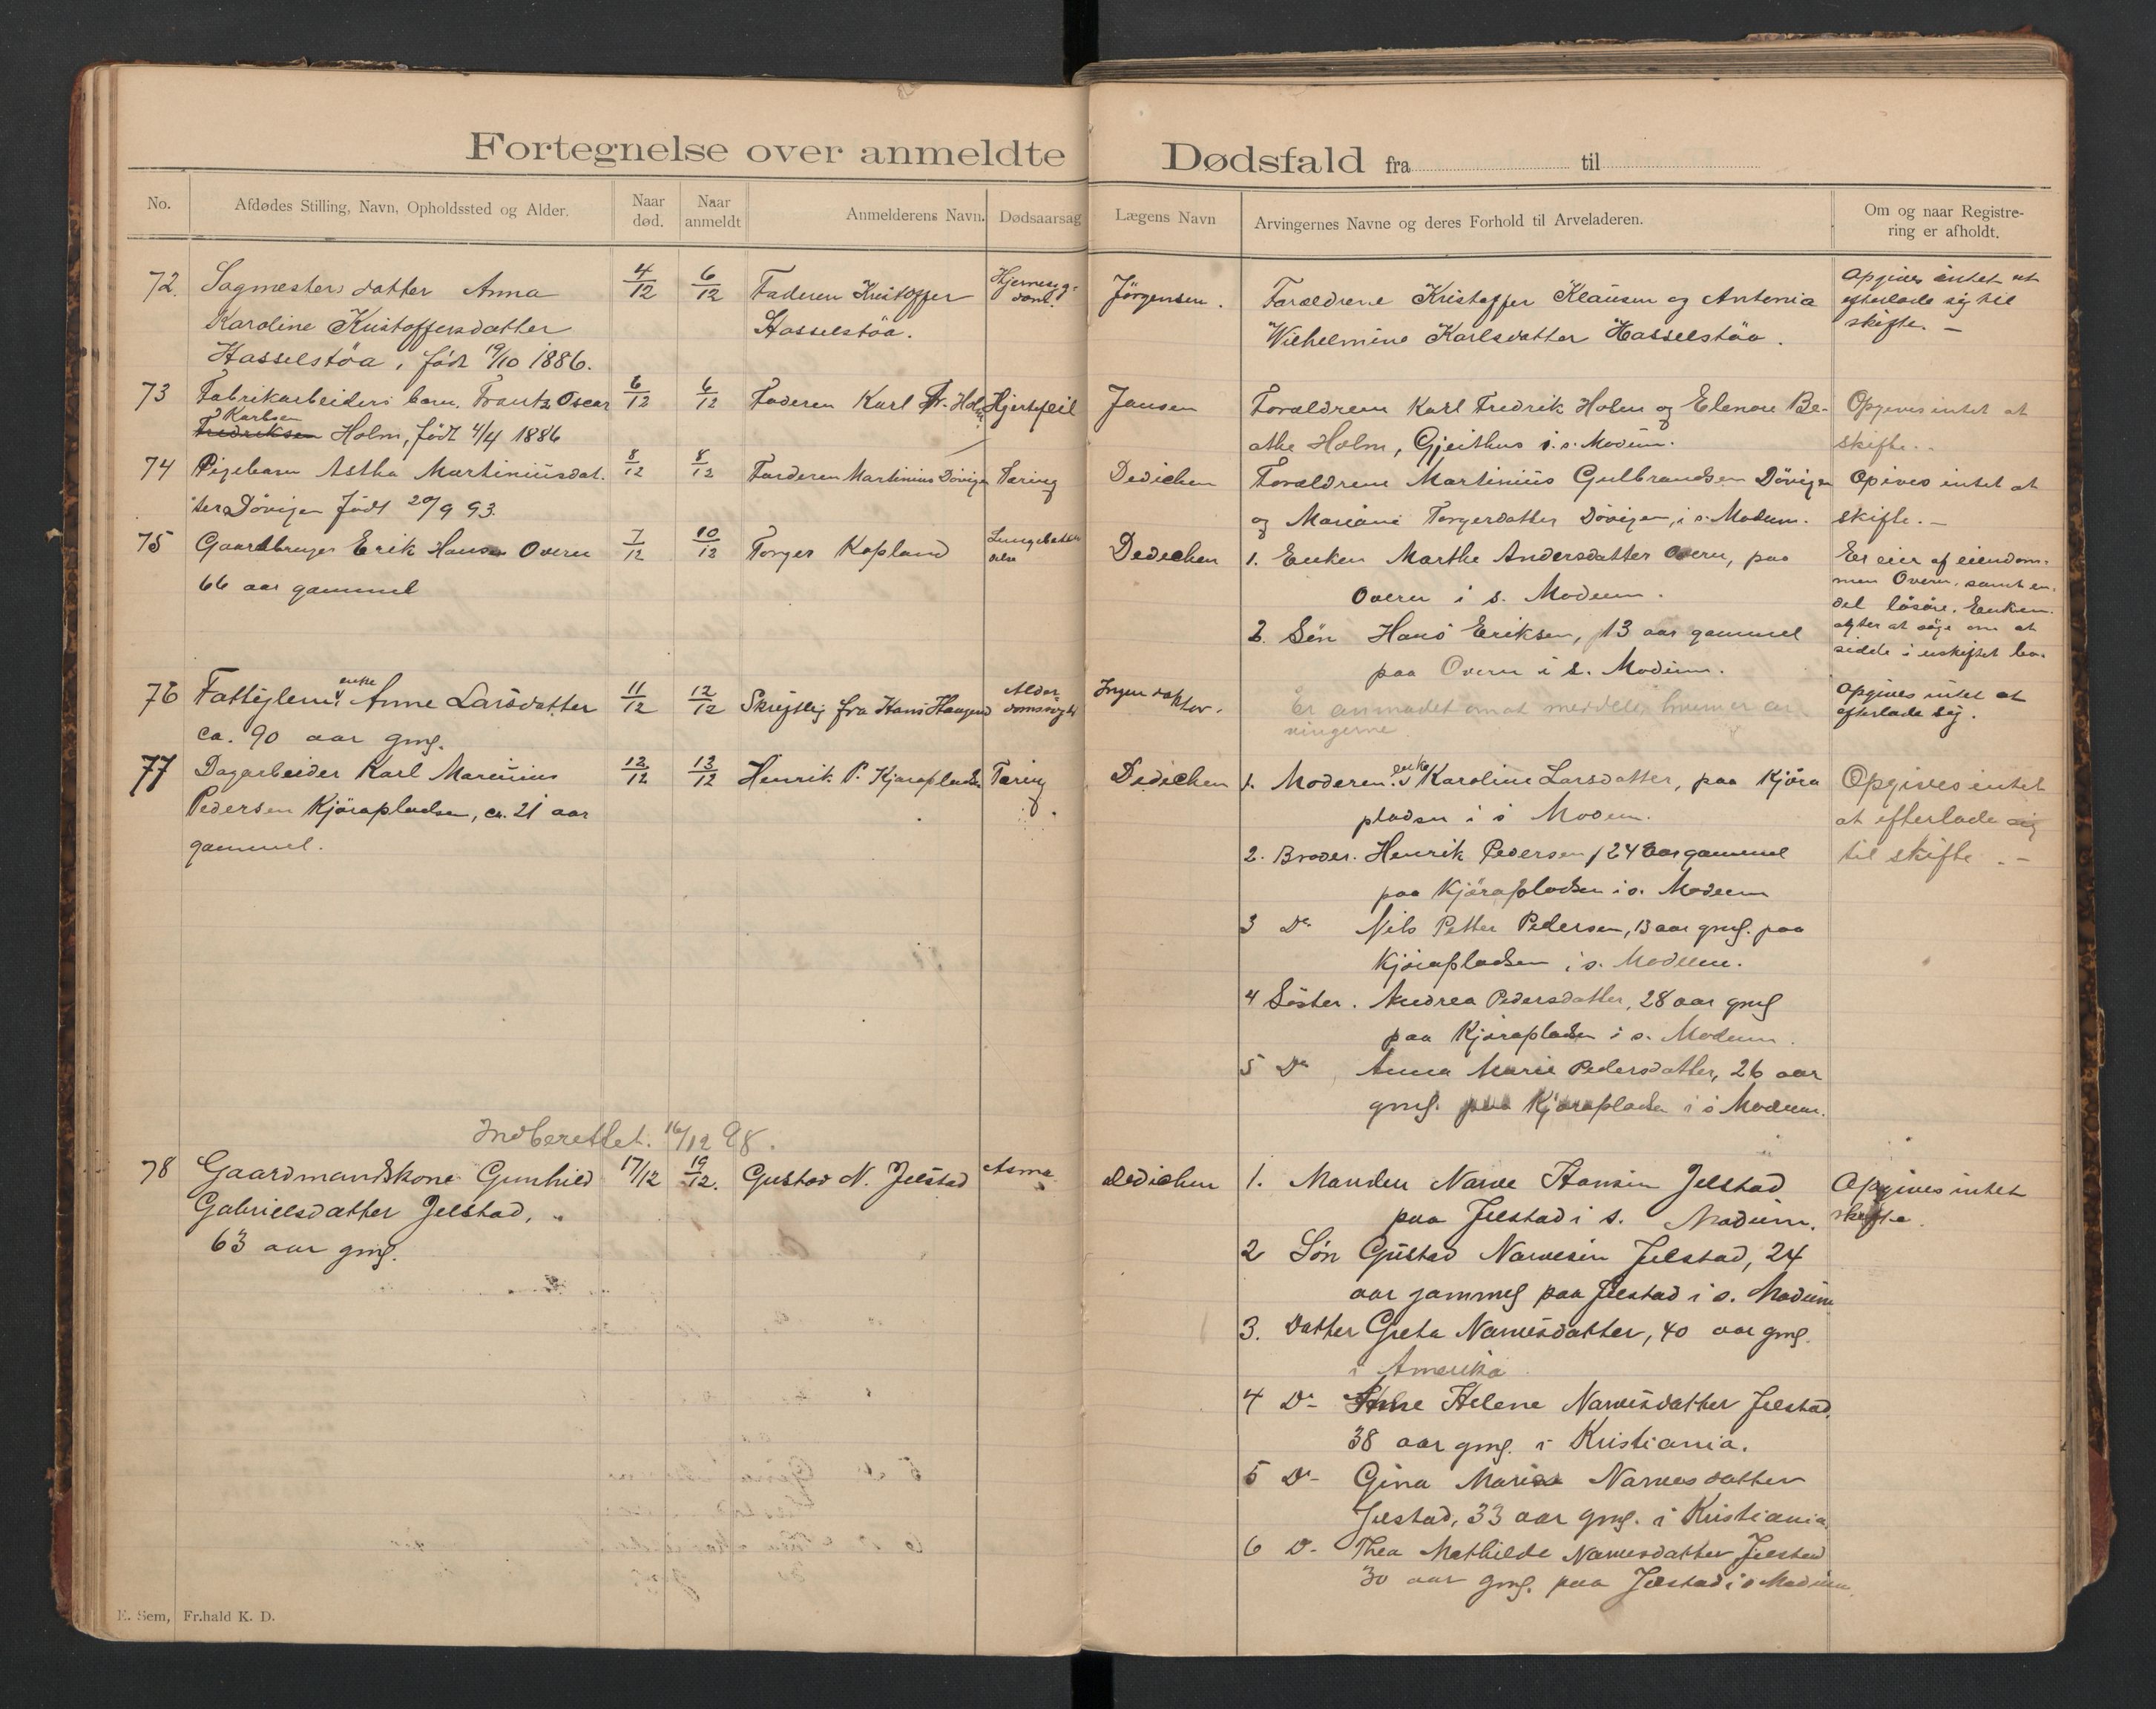 Fortegnelse over anmeldte Dødsfald fra til
No. Afdødes Stilling, Navn, Opholdssted og Alder. Naar død. Naar anmeldt Anmelderens Navn. Dødsaarsag Lægens Navn Arvingernes Navne og deres Forhold til Arveladeren. Om og naar Registrering er afholdt.
72. Sagmesters datter Anna
Karoline Kristoffersdatter
Hasselstöa, født 19/10 1886.
4/12
6/12
Faderen Kristoffer
Hasselstöa.
Jörgensen.
Forældrene Kristoffer Klausen og Antonia
Wilhelmine Karlsdatter Hasselstöa.
Opgives intet at
efterlade sig til
skifte. –
73 Fabrikarbeiders barn. Frantz Oscar
Karlsen
Fredriksen Holm, født 4/4 1886
6/12
6/12
Faderen Karl Fr. Holm
Hjertefeil
Jansen
Forældrene Karl Fredrik Holm og Elenore Be-
athe Holm, Gjeithus i s. Modum.
Opgives intet at
skifte. -
74 Pigebarn Astha Martiniusdat-
ter Dövigen født 20/9 93.
8/12
8/12
Farderen Martinius Dövigen
Tæring
Dedichen
Forældrene Martinius Gulbrandsen Dövigen
og Mariane Torgersdatter Dövigen, i s. Modum.
Opives intet at
skifte. –
75 Gaardbruger Erik Hansen Overn
66 aar gammel
7/12
10/12
Torger Kopland
Dedichen
1. Enken Marthe Andersdatter Overn, paa
Overn i s. Modum.
2. Sön Hans Eriksen, 13 aar gammel
paa Overn i s. Modum.
Er eier af eiendom-
men Overn, samt en
del lösöre. Enken
agter at söge om at
sidde i uskiftet bo.
76 Fattiglem enke Anne Larsdatter
ca. 90 aar gml.
11/12
12/12
Skriftlig fra Hans Haugen
Alder-
domssvagh
Ingen doktor.
Er anmodet om at meddele hvem er ar-
vingerne
Opgives intet at
efterlade sig.
77 Dagarbeider Karl Marinius
Pedersen Kjörapladsen, ca. 21 aar
gammel.
12/12
13/12
Henrik P. Kjöraplads
Tæring
Dedichen
1. Moderen enke Karoline Larsdatter, paa Kjöra
pladsen i s Modum.
2. Broder. Henrik Pedersen, 24 aar gammel
paa Kjörapladsen i s. Modum
3 Do Nils Petter Pedersen, 13 aar gml. paa
Kjörapladsen i s. Modum.
4 Söster. Andrea Pedersdatter, 28 aar gml
paa Kjörapladsen i s. Modum.
5 Do Anna Marie Pedersdatter, 26 aar
gml. paa Kjörapladsen i s Modum.
Opgives intet
at efterlade sig
til skifte. –
Indberettet. 16/12 98.
78 Gaardmandskone Gunhild
Gabrielsdatter Jelstad,
63 aar gml.
17/12
19/12.
Gustav N. Jelstad
Asma
Dedichen
1. Manden Narve Hansen Jelstad
paa Jelstad i s. Modum.
2 Sön Gustav Narvesen Jelstad, 24
aar gammel paa Jelstad i s. Modum
3. Datter Grete Narvesdatter, 40 aar gml.
i Amerika
4 D- Anne Helene Narvesdatter Jelstad,
38 aar gml. i Kristiania.
5 D- Gina Marie Narvesdatter
Jelstad, 33 aar gml. i Kristiania.
6 D- Thea Mathilde Narvesdatter Jelstad
30 aar gml. paa Jelstad i s Modum.
Opgives intet
skifte.
E. Sem, Fr.hald K. D.